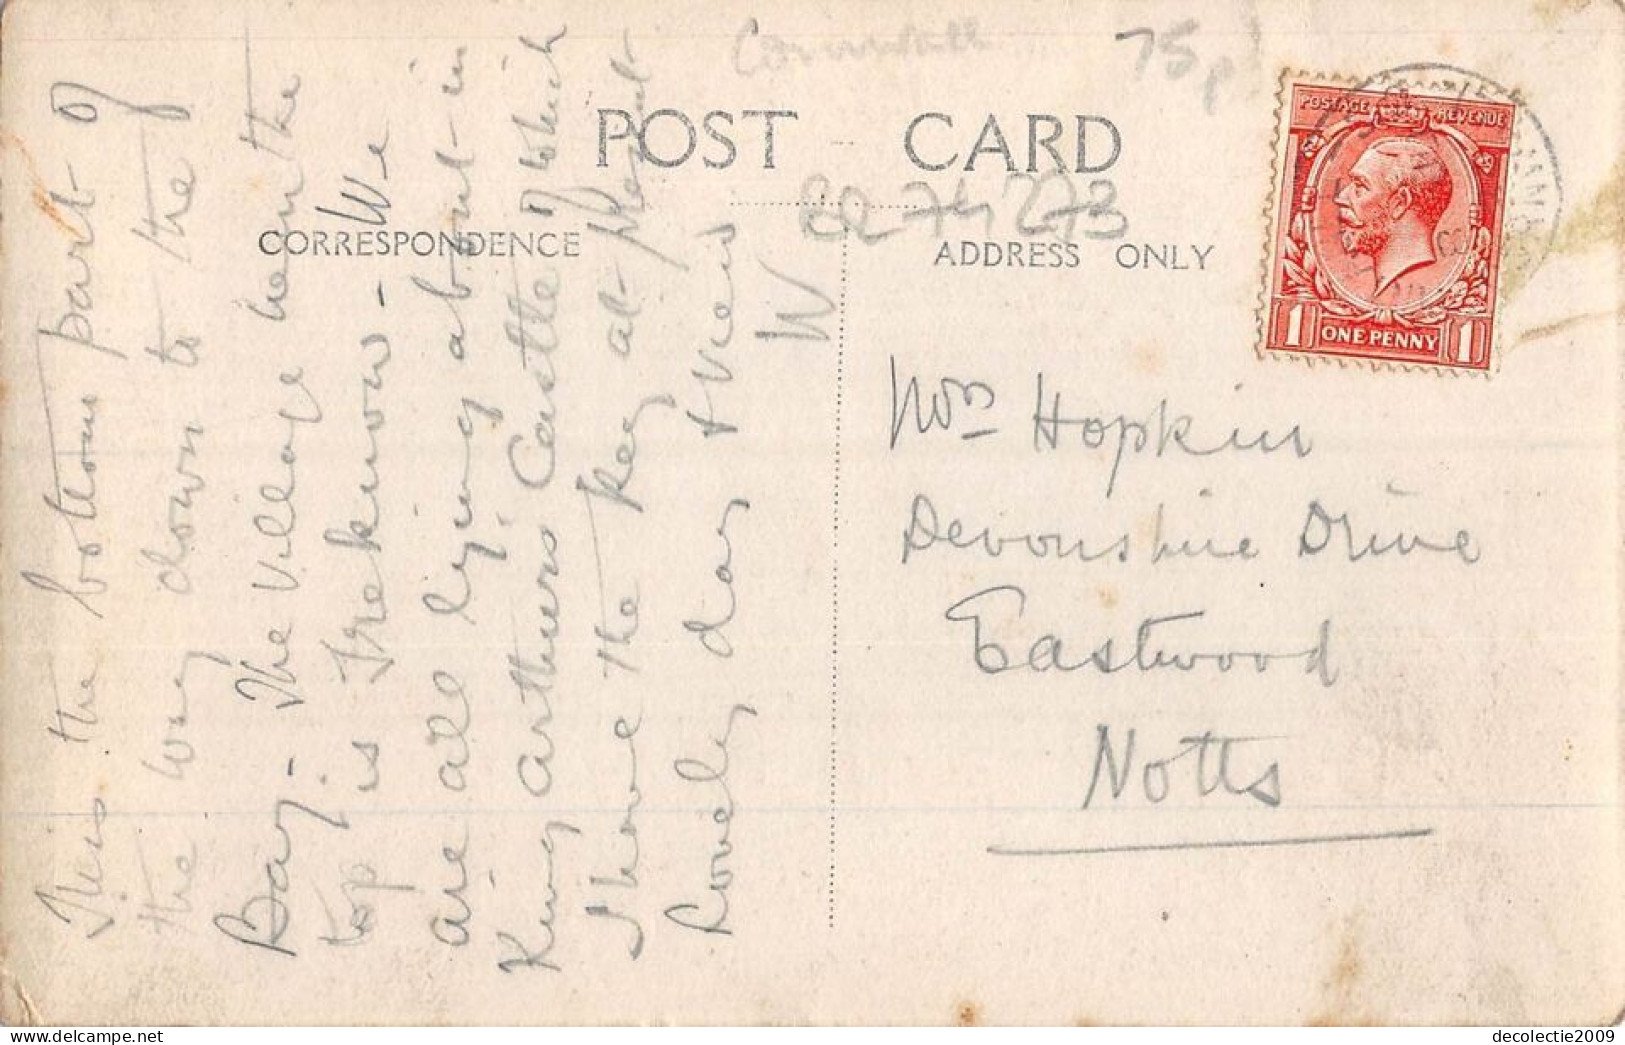 Cornwall
75p
POST CARD
CORRESPONDENCE
ADDRESS ONLY
POSTAGE REVENUE
1 ONE PENNY 1
This the bottom part of
the way down to the
Bay - The Village here on the
top is Treknow - We
are all lying about in
King Arthurs Castle of which
I have the key at present
Lovely day & views
W
Mrs Hopkin
Devonshire Drive
Eastwood
Notts
decolectie2009